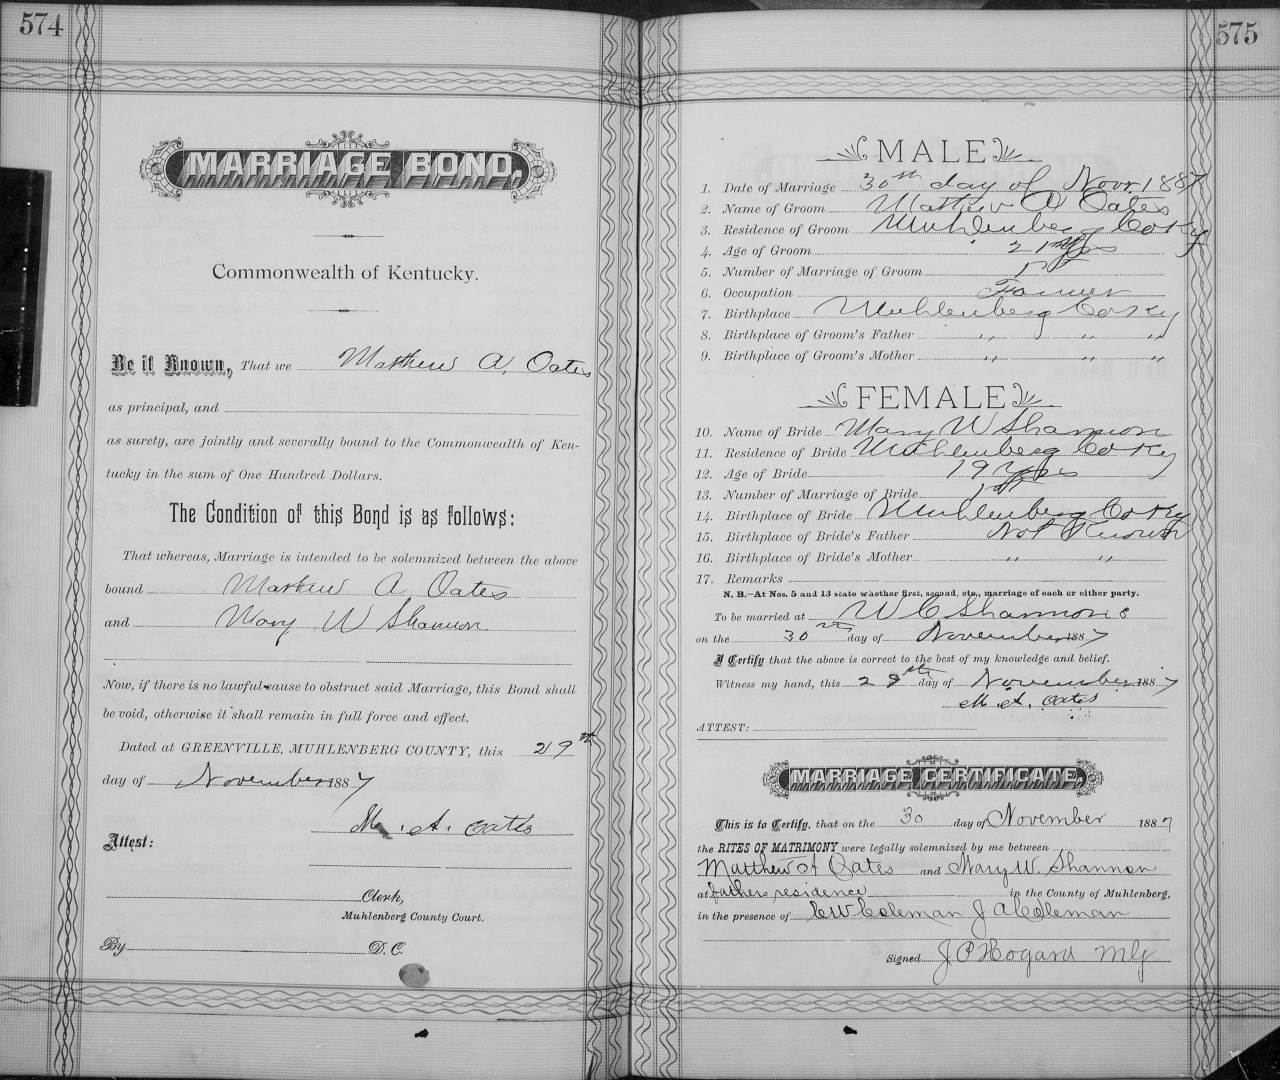 574
MARRIAGE BOND.
Commonwealth of Kentucky.
Be it Known, That we Matthew A. Oates
as principal, and
as surety, are jointly and severally bound to the Commonwealth of Ken-
tucky in the sum of One Hundred Dollars.
The Condition of this Bond is as follows:
That whereas, Marriage is intended to be solemnized between the above
bound Mathew A. Oates
and Mary W Shannon
Now, if there is no lawful cause to obstruct said Marriage, this Bond shall
be void, otherwise it shall remain in full force and effect.
Dated at GREENVILLE, MUHLENBERG COUNTY, this 29th
day of November 1887
M. A. Oates
Attest:
Clerk,
Muhlenberg County Court.
By D. C.
575
MALE
1. Date of Marriage 30th day of Novr. 1887
2. Name of Groom Mathew A Oates
3. Residence of Groom Muhlenberg Co Ky
4. Age of Groom 21 yrs
5. Number of Marriage of Groom 1st
6. Occupation Farmer
7. Birthplace Muhlenberg Co Ky
8. Birthplace of Groom's Father " " "
9. Birthplace of Groom's Mother " " "
FEMALE
10. Name of Bride Mary W Shannon
11. Residence of Bride Muhlenberg Co Ky
12. Age of Bride 19 Yrs
13. Number of Marriage of Bride 1st
14. Birthplace of Bride Muhlenberg Co Ky
15. Birthplace of Bride's Father Not Known
16. Birthplace of Bride's Mother " "
17. Remarks
N. B.—At Nos. 5 and 13 state whether first, second, etc., marriage of each or either party.
To be married at W C Shannons
on the 30th day of November 1887
I Certify that the above is correct to the best of my knowledge and belief.
Witness my hand, this 29th day of November 1887
M. A. Oates
ATTEST:
MARRIAGE CERTIFICATE.
This is to Certify, that on the 30 day of November 1887
the RITES OF MATRIMONY were legally solemnized by me between
Matthew A Oates and Mary W. Shannon
at fathers residence in the County of Muhlenberg,
in the presence of C W Coleman J A Coleman
Signed J P Hogard Mlg